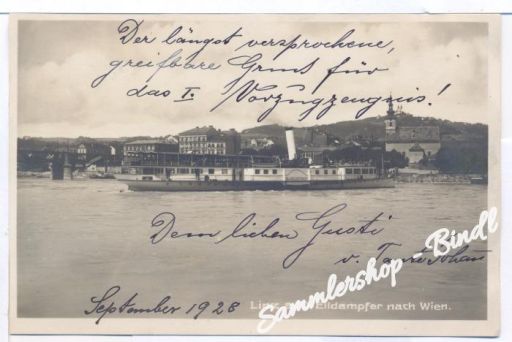 Der längst versprochene,
greifbare Gruß für
das I. Vorzugszeugnis!
Dem lieben Gusti
v. Tante
September 1928
Linz a. Eildampfer nach Wien.
Sammlershop - Bindl